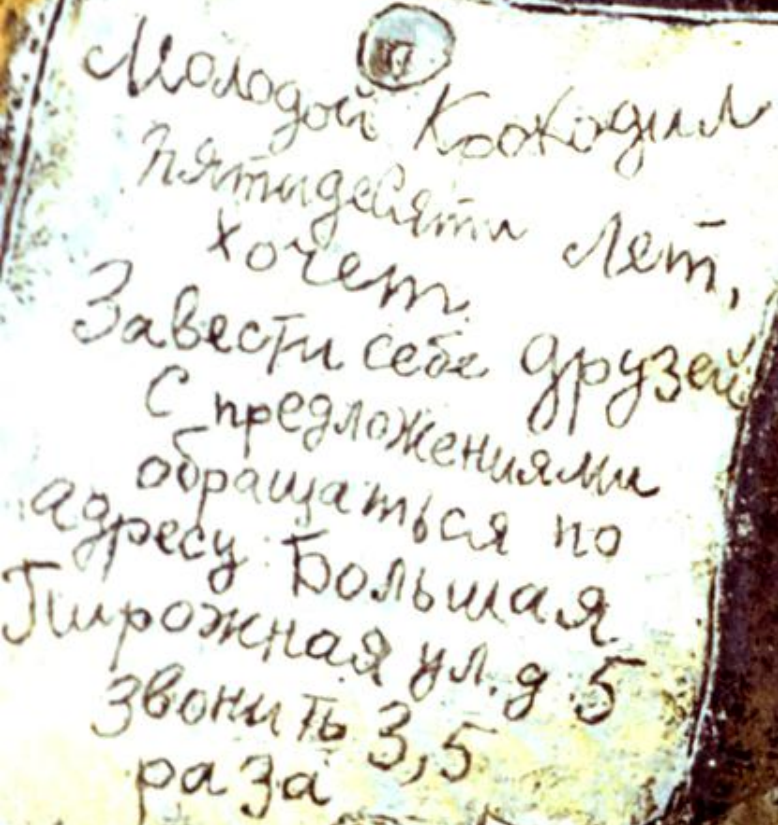 Молодой Крокодил
Пятидесяти Лет,
хочет
Завести себе друзей
С предложениями
обращаться по
адресу: Большая
Пирожная ул. д 5
звонить 3,5
раза